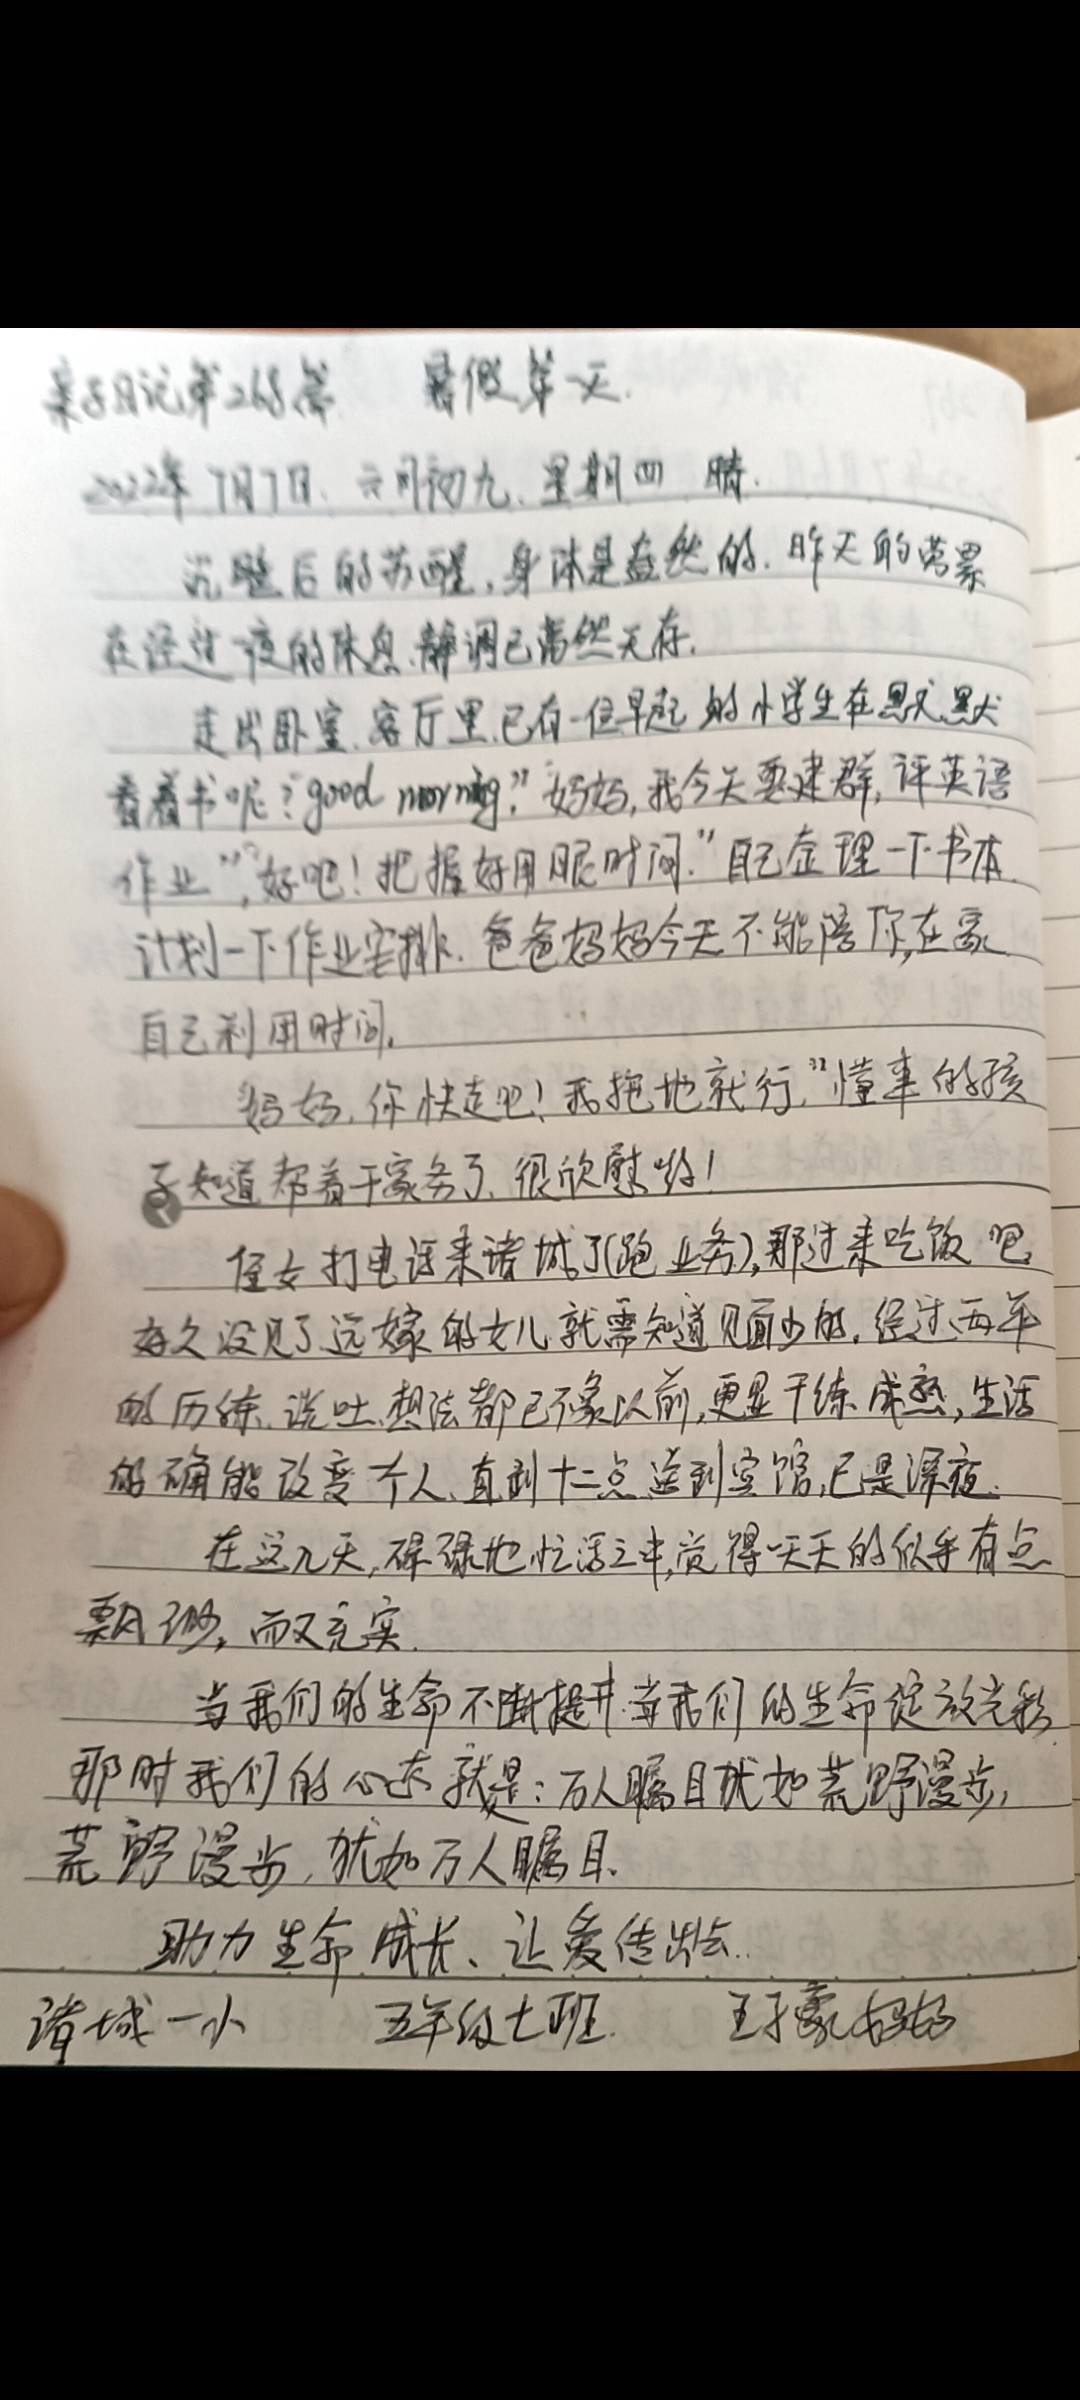 亲子日记第268篇 暑假第一天.
2022年7月7日. 六月初九. 星期四 晴.
沉睡后的苏醒,身体是盎然的.昨天的劳累
在经过一夜的休息.静调已荡然无存.
走出卧室.客厅里.已有一位早起的小学生在默默
看着书呢?"good morning." "妈妈,我今天要建群,评英语
作业","好吧!把握好用眼时间."自己整理一下书本.
计划一下作业安排.爸爸妈妈今天不能陪你,在家
自己利用时间.
"妈妈.你快走吧!我拖地就行."懂事的孩
子知道帮着干家务了.很欣慰哟!
侄女打电话来诸城了(跑业务),那过来吃饭吧.
好久没见了远嫁的女儿就需知道见面少的.经过两年
的历练.谈吐.想法都已不象以前,更显干练成熟,生活
的确能改变个人.直到十二点送到宾馆,已是深夜.
在这几天,碌碌地忙活之中,觉得一天天的似乎有点
飘渺,而又充实.
当我们的生命不断提升.当我们的生命绽放光彩.
那时我们的心态就是:万人瞩目犹如荒野漫步,
荒野漫步,犹如万人瞩目.
助力生命成长、让爱传出去..
诸城一小 五年级七班. 王子豪妈妈